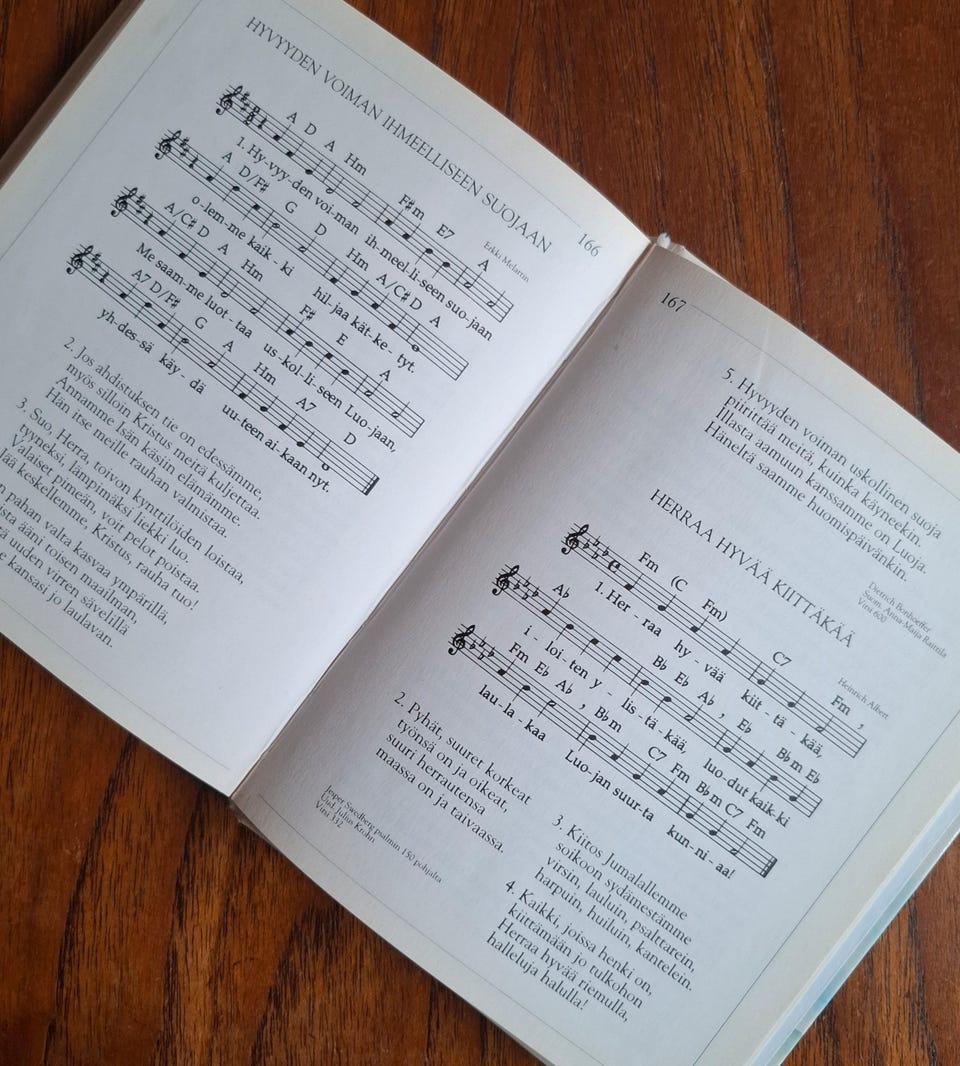 HYVYYDEN VOIMAN IHMEELLISEEN SUOJAAN
166
Erkki Melartin
A D A Hm F#m E7 A
1. Hy-vyy-den voi-man ih-meel-li-seen suo-jaan
A D/F# G D Hm A/C# D A
o-lem-me kaik-ki hil-jaa kät-ke-tyt.
A/C# D A Hm F# E A
Me saam-me luot-taa us-kol-li-seen Luo-jaan,
A7 D/F# G A Hm A7 D
yh-des-sä käy-dä uu-teen ai-kaan nyt.
2. Jos ahdistuksen tie on edessämme,
myös silloin Kristus meitä kuljettaa.
Annamme Isän käsiin elämämme.
Hän itse meille rauhan valmistaa.
3. Suo, Herra, toivon kynttilöiden loistaa,
tyyneksi, lämpimäksi liekki luo.
Valaiset pimeän, voit pelot poistaa.
keskellemme, Kristus, rauha tuo!
pahan valta kasvaa ympärillä,
ääni toisen maailman,
uuden virren sävelillä
kansasi jo laulavan.
167
5. Hyvyyden voiman uskollinen suoja
piirittää meitä, kuinka käyneekin.
Illasta aamuun kanssamme on Luoja.
Häneltä saamme huomispäivänkin.
Dietrich Bonhoeffer
Suom. Anna-Maija Raittila
Virsi 600
HERRAA HYVÄÄ KIITTÄKÄÄ
Heinrich Albert
Fm (C Fm) C7 Fm ,
1. Her-raa hy-vää kiit-tä-kää,
A♭ B♭ E♭ A♭ , E♭ B♭m E♭
i-loi-ten y-lis-tä-kää, luo-dut kaik-ki
Fm E♭ A♭ , B♭m C7 Fm B♭m C7 Fm
lau-la-kaa Luo-jan suur-ta kun-ni-aa!
2. Pyhät, suuret korkeat
työnsä on ja oikeat,
suuri herrautensa
maassa on ja taivaassa.
Jesper Swedberg psalmin 150 pohjalta
Uud. Julius Krohn
Virsi 332
3. Kiitos Jumalallemme
soikoon sydämestämme
virsin, lauluin, psalttarein,
harpuin, huiluin, kantelein.
4. Kaikki, joissa henki on,
kiittämään jo tulkohon
Herraa hyvää riemulla,
halleluja halulla!